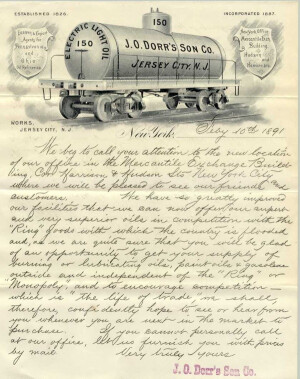 ESTABLISHED 1826.
INCORPORATED 1897.
150
ELECTRIC LIGHT OIL
150
J.O. DORR'S SON CO.
JERSEY CITY, N.J.
WORKS,
JERSEY CITY, N.J.
New York, Feby 10th 1891
We beg to call your attention to the new location
of our office in the Mercantile Exchange Build-
ing, Cor Harrison & Hudson Sts New York City
where we will be pleased to see our friends and
customers. We have so greatly improved
our facilities that we can now offer our
and very superior oils in competition with the
"Ring" Goods with which the country is flooded
and, as we are quite sure that you will be glad
of an opportunity to get your supply of
burning or lubricating oils, paint oils & gasolene
outside and independent of the "Ring" or
Monopoly, and to encourage competition—
which is "the life of trade" we shall,
therefore, confidently hope to see or hear from
you whenever you are next in the market to
purchase. If you cannot personally call
at our office, let us furnish you with prices
by mail Very truly yours
J. O. Dorr's Son Co.